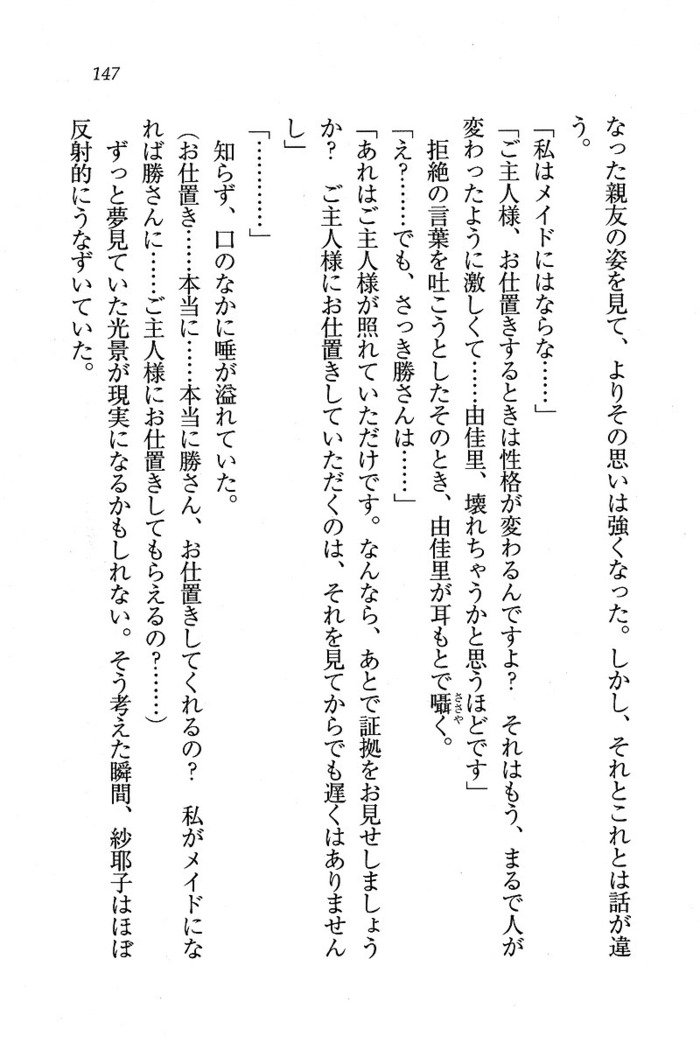 147
なった親友の姿を見て、よりその思いは強くなった。しかし、それとこれとは話が違
う。
「私はメイドにはならな……」
「ご主人様、お仕置きするときは性格が変わるんですよ？　それはもう、まるで人が
変わったように激しくて……由佳里、壊れちゃうかと思うほどです」
拒絶の言葉を吐こうとしたそのとき、由佳里が耳もとで囁く。
ささや
「え？……でも、さっき勝さんは……」
「あれはご主人様が照れていただけです。なんなら、あとで証拠をお見せしましょう
か？　ご主人様にお仕置きしていただくのは、それを見てからでも遅くはありません
し」
「…………」
知らず、口のなかに唾が溢れていた。
（お仕置き……本当に……本当に勝さん、お仕置きしてくれるの？　私がメイドにな
れば勝さんに……ご主人様にお仕置きしてもらえるの？……）
ずっと夢見ていた光景が現実になるかもしれない。そう考えた瞬間、紗耶子はほぼ
反射的にうなずいていた。